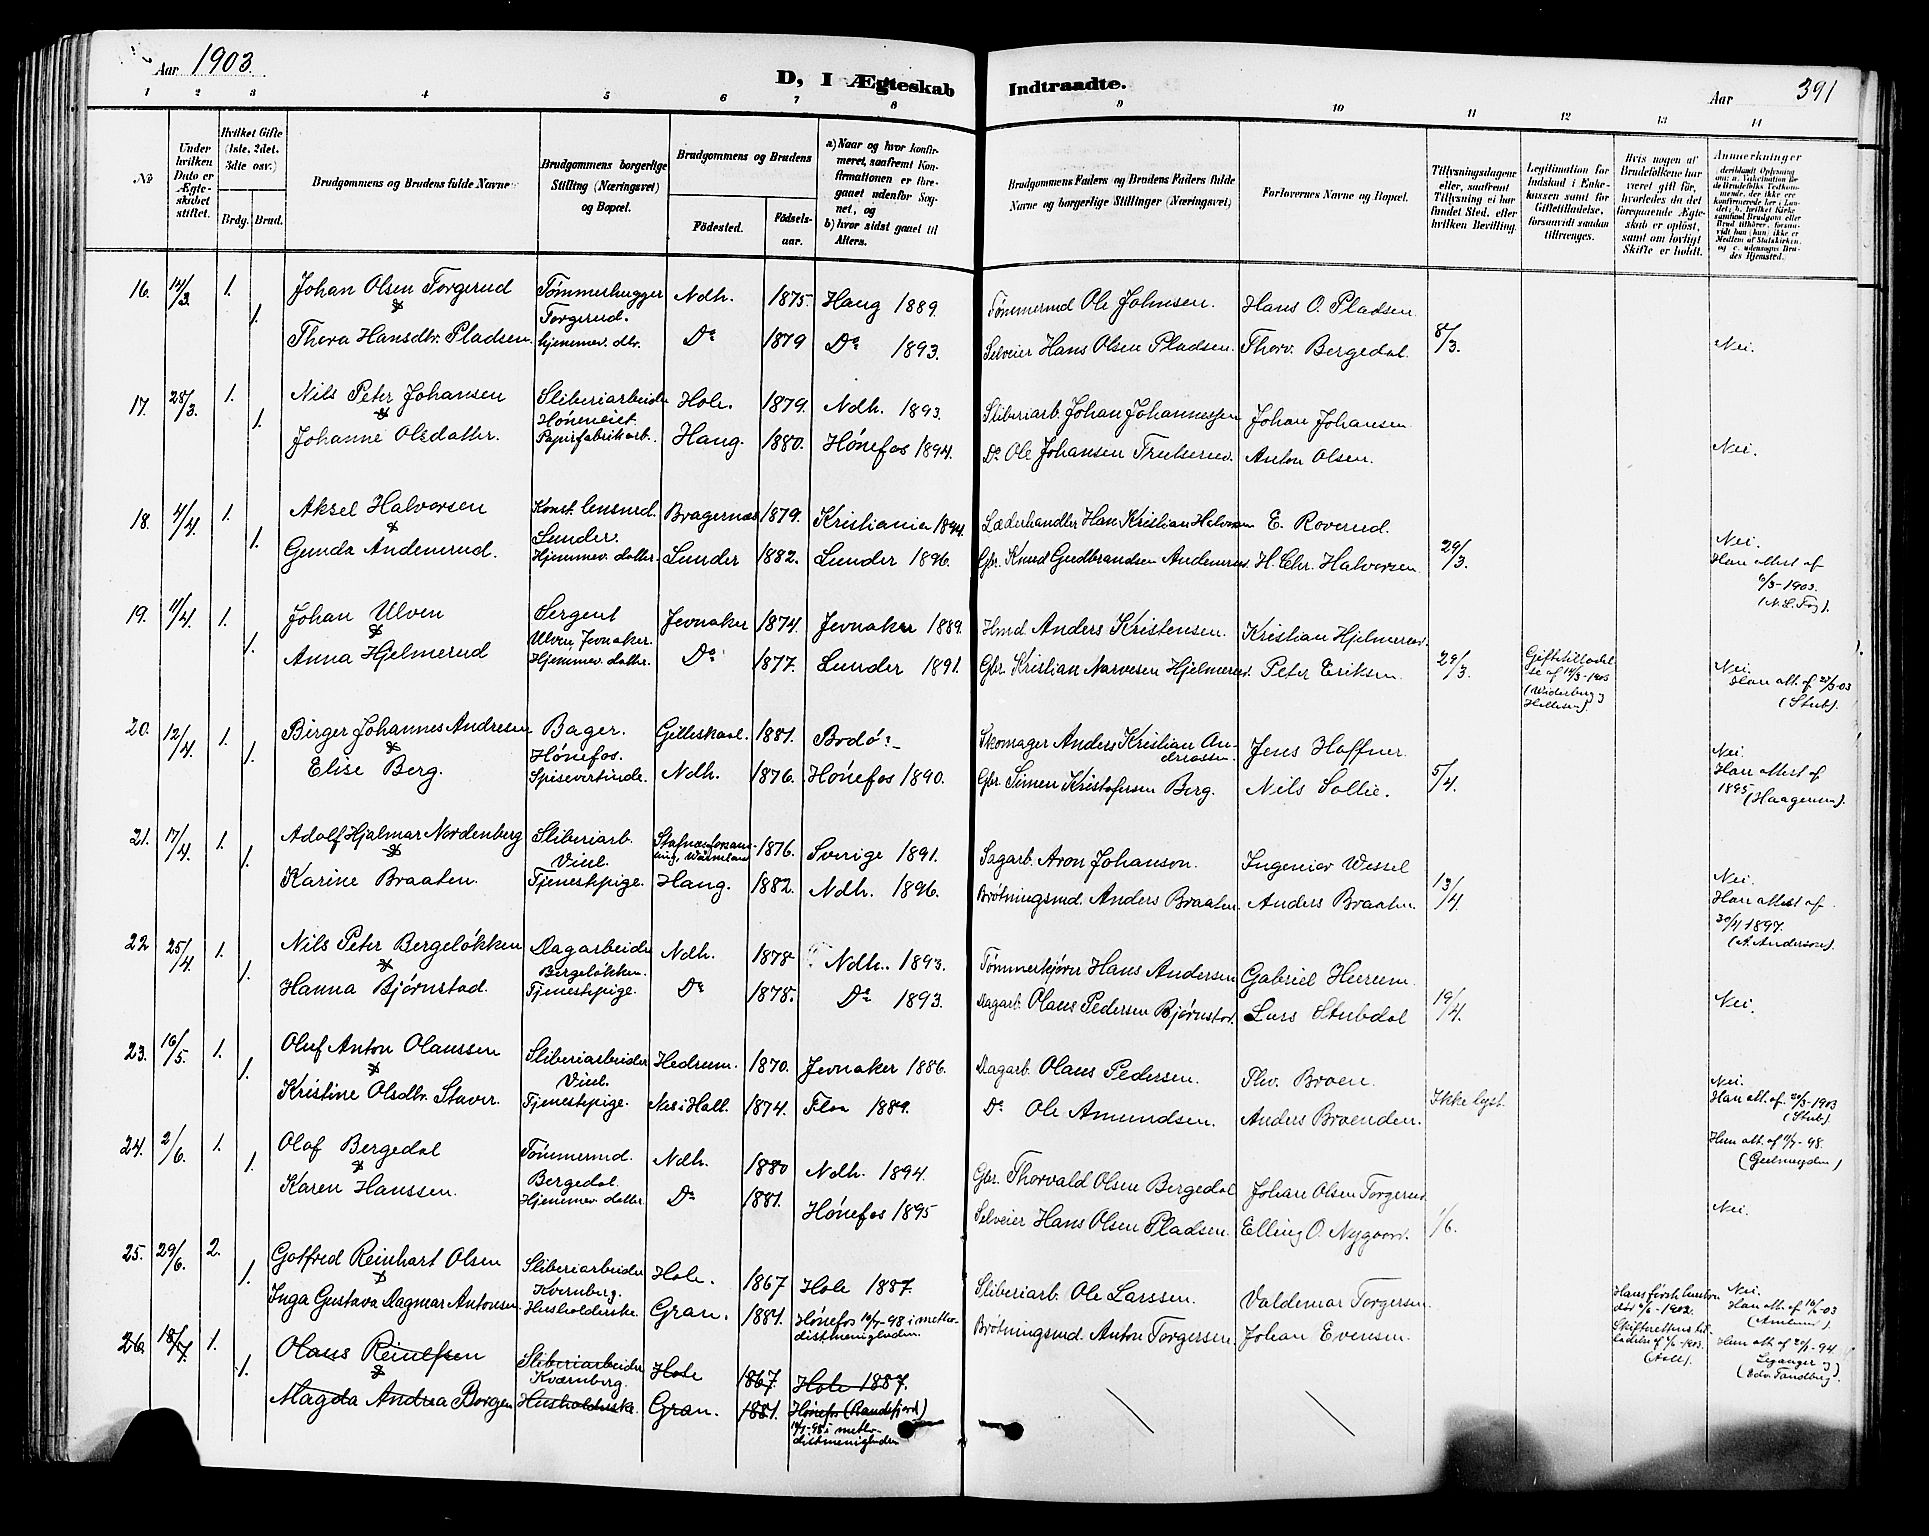 Aar 1903.
D, I Ægteskab Indtraadte.
Aar 391
1 2 3 4 5 6 7 8 9 10 11 12 13 14
No
Under hvilken Dato er Ægteskabet stiftet.
Hvilket Gifte (1ste, 2det, 3die osv.)
Brdg. Brud.
Brudgommens og Brudens fulde Navne
Brudgommens borgerlige Stilling (Næringsvei) og Bopæl.
Brudgommens og Brudens
Fødested. Fødselsaar.
a) Naar og hvor konfirmeret, saafremt Konfirmationen er foregaaet udenfor Sognet, og
b) hvor sidst gaaet til Alters.
Brudgommens Faders og Brudens Faders fulde Navne og borgerlige Stillinger (Næringsvei)
Forlovernes Navne og Bopæl.
Tillysningsdagene eller, saafremt Tillysning ei har fundet Sted, efter hvilken Bevilling.
Legitimation for Indskud i Enkekassen samt for Giftetilladelse, forsaavidt saadan tiltrænges.
Hvis nogen af Brudefolkene har været gift før, hvorledes da det foregaaende Ægteskab er opløst, samt om lovligt Skifte er holdt.
Anmærkninger
16. 14/3 1. Johan Olsen Torgerud Tømmerhugger Ndh. 1875 Haug 1889. Tømmermd Ole Johnsen. Hans O. Pladsen.
& 1. Torgerud.
Thora Hansdtr. Pladsen. hjemmev. dtr. Do 1879 Do 1893. Selveier Hans Olsen Pladsen. Thorv. Bergedal. 8/3. Nei.
17. 28/3. 1. Nils Peter Johansen Sliberiarbeider Hole. 1879. Ndh. 1893. Sliberiarb. Johan Johannessen Johan Johansen
& 1. Høneneiet.
Johanne Olsdatter. Papirfabrikarb. Haug. 1880. Hønefos 1894. Do Ole Johansen Anton Olsen. Nei.
18. 4/4 1. Aksel Halvorsen Konst. lensmd. Bragernæs 1879. Kristiania 1894. Læderhandler Han Kristian Halvorsen E. Roverud.
& 1. Lunder.
Gunda Andemrud. Hjemmev. datter. Lunder 1882. Lunder 1896. Gbr. Knud Gudbrandsen Andemrud. H. Chr. Halvorsen 29/3. Nei. Han attest af 6/3-1903.
19. 11/4. 1. Johan Ulven Sergent Jevnaker 1874. Jevnaker 1889. Hmd. Anders Kristensen. Kristian Hjelmerud.
& 1. Ulven, Jevnaker.
Anna Hjelmerud Hjemmev. datter. Do 1877. Lunder 1891. Gbr. Kristian Narvesen Hjelmerud. Peter Eriksen. 29/3. Giftetilladelse af 14/3-1903 Nei. Han att. af 23/3-03 (Stub).
20. 12/4. 1. Birger Johannes Andresen Bager. Gilleskaal. 1881. Bodø:- Skomager Anders Kristian Andreassen. Jens Haffner.
& 1. Hønefos.
Elise Berg. Spisevertinde. Ndh. 1876. Hønefos 1890. Gbr. Simen Kristofersen Berg. Nils Sollie. 5/4. Nei. Han attest af 1895
21. 17/4. 1. Adolf Hjalmar Nordenberg Sliberiarb. 1876. Sverige 1891. Sagarb. Aron Johanson. Ingeniør Wessel
& 1. Viul.
Karine Braaten. Tjenestepige. Haug. 1882. Ndh. 1896. Brøtningsmd. Anders Braaten. Anders Braaten 13/4. Nei. Han attest af 30/4 1897. (A. Anderson).
22 25/4 1. Nils Peter Bergeløkken Dagarbeider Ndh. 1878 Ndh. 1893. Tømmerkjører Hans Andersen Gabriel Hurum.
& 1. Bergeløkken.
Hanna Bjørnstad. Tjenestepige. Do 1878. Do 1893. Dagarb. Olaus Pedersen Bjørnstad. Lars Stubdal 19/4. Nei.
23. 16/5. 1. Oluf Anton Olaussen Sliberiarbeider Hedrum. 1870. Jevnaker 1886. Dagarb. Olaus Pedersen. Braen.
& 1. Viul.
Kristine Olsdtr. Staver. Tjenestepige. Nes i Hall. 1874. Flaa 1889. Do Ole Amundsen. Anders Braenden. Ikke lyst. Nei. Han att. af 20/3-1903 (Stub)
24. 2/6. 1. Olaf Bergedal Tømmermd. Ndh. 1880 Ndh. 1894. Gbr. Thorvald Olsen Bergedal. Johan Olsen Torgerud. Hun att. af 11/7-98.
& 1. Bergedal.
Karen Hanssen. Hjemmev. datter. Do 1881. Hønefos 1895 Selveier Hans Olsen Pladsen. Elling O. Nygaard. 1/6. Nei.
25. 29/6. 2. Gotfred Reinhart Olsen Sliberiarbeider Hole. 1867 Hole 1887. Sliberiarb. Ole Larssen. Valdemar Torgersen.
& 1. Kvernberg.
Inga Gustava Dagmar Antonsen Husholderske Gran. 1881. Hønefos i metodistmenigheden. Brøtningsmd. Anton Torgersen. Johan Evensen. Hans første hustru død 6/6-1902. Nei. Han att. af 16/6-03
26. 18/7. 1. Olaus Sliberiarbeider Hole 1867 Hole 1887.
& 1. Kværnberg.
Magda Andrea Borgen Husholderske Gran. 1881. Hønefos (Randsfjord) i metodistmenigheden Hun att. af